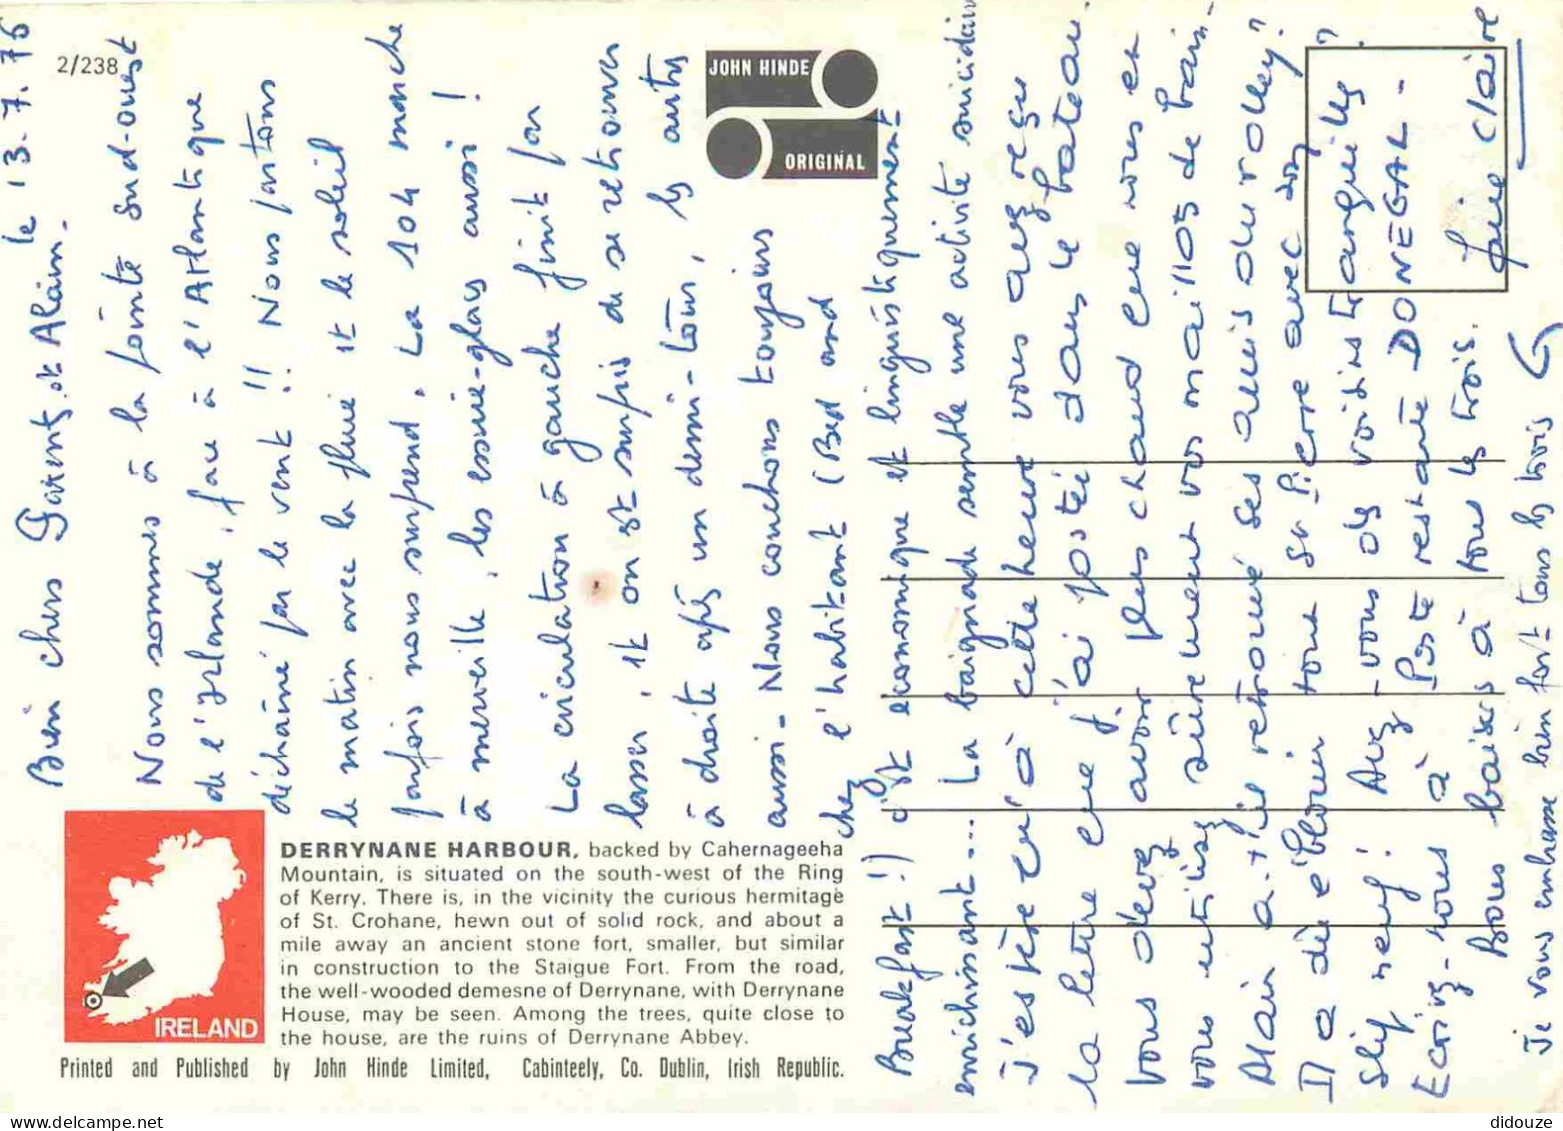 le 13.7.76
Bien chers Parents et Alain.
Nous sommes à la pointe sud-ouest
de l'Irlande, face à l'Atlantique
déchaîné par le vent !! Nous partons
le matin avec la pluie et le soleil
parfois nous surprend. La 104 marche
à merveille, les essuie-glaces aussi !
La circulation à gauche finit par
lasser, et on est surpris de se retrouver
à droite après un demi-tour, les autres
aussi - Nous couchons toujours
chez l'habitant (Bed and
Breakfast !) c'est economique et linguistiquement
enrichissant... La baignade semble une activité suicidaire
J'espère qu'à cette heure vous avez reçu
la lettre que j'ai postée dans le bateau.
Vous devez avoir plus chaud que nous et
vous utilisez sûrement vos maillots de bain -
Alain a-t-il retrouvé ses amis du volley ?
Il a dû éblouir tous St Pierre avec son
slip neuf ! Avez-vous des voisins tranquilles ?
Ecrivez-nous à Poste restante DONEGAL -
Bons baisers à tous les trois.
Marie Claire
Je vous embrasse bien fort tous les trois G
2/238
JOHN HINDE
ORIGINAL
IRELAND
DERRYNANE HARBOUR, backed by Cahernageeha
Mountain, is situated on the south-west of the Ring
of Kerry. There is, in the vicinity the curious hermitage
of St. Crohane, hewn out of solid rock, and about a
mile away an ancient stone fort, smaller, but similar
in construction to the Staigue Fort. From the road,
the well-wooded demesne of Derrynane, with Derrynane
House, may be seen. Among the trees, quite close to
the house, are the ruins of Derrynane Abbey.
Printed and Published by John Hinde Limited, Cabinteely, Co. Dublin, Irish Republic.
didouze